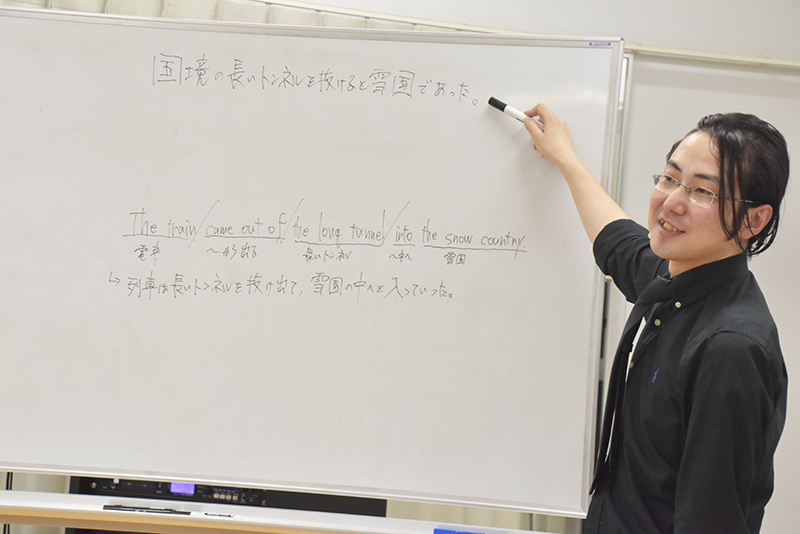 国境の長いトンネルを抜けると雪国であった。
The train/came out of/the long tunnel/into the snow country.
電車 〜から出る 長いトンネル 〜中へ 雪国
↳ 列車は長いトンネルを抜け出て、雪国の中へと入っていった。